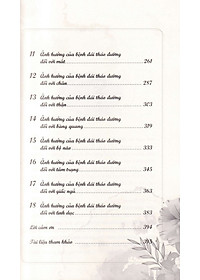 11 Ảnh hưởng của bệnh đái tháo đường
đối với mắt 261
12 Ảnh hưởng của bệnh đái tháo đường
đối với chân 287
13 Ảnh hưởng của bệnh đái tháo đường
đối với thận 303
14 Ảnh hưởng của bệnh đái tháo đường
đối với bàng quang 319
15 Ảnh hưởng của bệnh đái tháo đường
đối với bộ não 333
16 Ảnh hưởng của bệnh đái tháo đường
đối với tâm trạng 345
17 Ảnh hưởng của bệnh đái tháo đường
đối với giấc ngủ 363
18 Ảnh hưởng của bệnh đái tháo đường
đối với tình dục 383
Lời cảm ơn 394
Tài liệu tham khảo 395